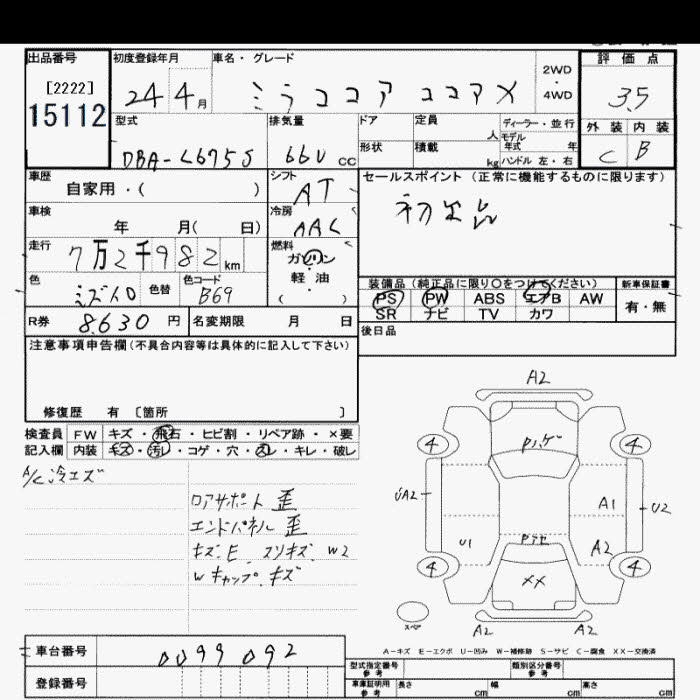 出品番号 初度登録年月 車名・グレード 評価点
[2222] 24 4月 ミラココア ココアX 2WD・4WD 3.5
15112
型式 排気量 ドア 定員 人 ディーラー・並行 外装 内装
DBA-L675S 660 cc 形状 積載 kg モデル年式 年 ハンドル 左・右 C B
車歴 シフト セールスポイント (正常に機能するものに限ります)
自家用・( ) AT
車検 冷房 初出品
年 月( 日) AAC
走行 燃料
7万2千982km ガソリン・軽油
色 色替 色コード ( ) 装備品 (純正品に限り○をつけてください) 新車保証書
ミズイロ B69 PS PW ABS エアB AW 有・無
SR ナビ TV カワ
R券 8,630 円 名変期限 月 日 後日品
注意事項申告欄 (不具合内容等は具体的に記入して下さい)
修復歴 有 [箇所 ]
検査員 FW キズ・飛石・ヒビ割・リペア跡・×要
記入欄 内装 キズ・汚レ・コゲ・穴・スレ・キレ・破レ
A/C冷エズ
ロアサポート 歪
エンドパネル 歪
キズ.E スリキズ.W2
Wキャップ.キズ
A2
4 Pハゲ 4
UA2 A1 U2
U1 Pアセ A2
4 XX 4
スペア A2 A2
A-キズ E-エクボ U-凹み W-補修跡 S-サビ C-腐食 XX-交換済
車台番号 0099092
登録番号
型式指定番号 参考 類別区分番号 参考
車庫証明用 参考 長さ cm 幅 cm 高さ cm